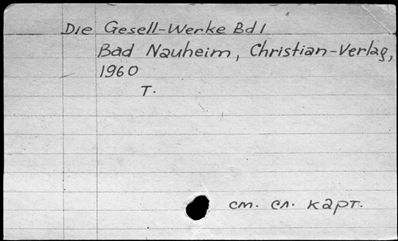 Die Gesell-Werke Bd 1
Bad Nauheim, Christian-Verlag,
1960
T.
см. сл. карт.